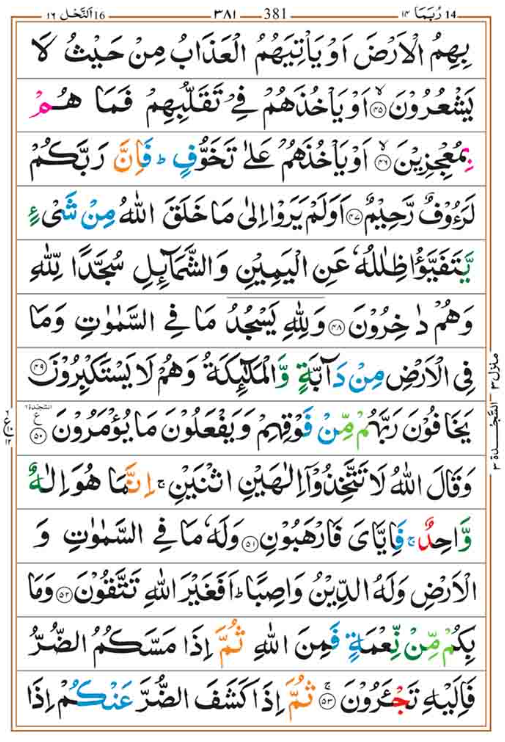 16 اَلنَّحۡل ١٦ ٣٨١ 381 14 رُبَمَا ١٤
بِهِمُ الۡاَرۡضَ اَوۡ يَاۡتِيَهُمُ الۡعَذَابُ مِنۡ حَيۡثُ لَا
يَشۡعُرُوۡنَ ۙ‏﴿۴۵﴾ اَوۡ يَاۡخُذَهُمۡ فِىۡ تَقَلُّبِهِمۡ فَمَا هُمۡ
بِمُعۡجِزِيۡنَ ۙ‏﴿۴۶﴾ اَوۡ يَاۡخُذَهُمۡ عَلٰى تَخَوُّفٍ ؕ فَاِنَّ رَبَّكُمۡ
لَرَءُوۡفٌ رَّحِيۡمٌ‏﴿۴۷﴾ اَوَلَمۡ يَرَوۡا اِلٰى مَا خَلَقَ اللّٰهُ مِنۡ شَىۡءٍ
يَّتَفَيَّؤُا ظِلٰلُهٗ عَنِ الۡيَمِيۡنِ وَالشَّمَآٮِٕلِ سُجَّدًا لِّلّٰهِ
وَهُمۡ دٰخِرُوۡنَ‏﴿۴۸﴾ وَلِلّٰهِ يَسۡجُدُ مَا فِى السَّمٰوٰتِ وَمَا
فِى الۡاَرۡضِ مِنۡ دَآبَّةٍ وَّالۡمَلٰۤٮِٕكَةُ وَهُمۡ لَا يَسۡتَكۡبِرُوۡنَ‏﴿۴۹﴾
يَخَافُوۡنَ رَبَّهُمۡ مِّنۡ فَوۡقِهِمۡ وَيَفۡعَلُوۡنَ مَا يُؤۡمَرُوۡنَ ۩‏﴿۵۰﴾
وَقَالَ اللّٰهُ لَا تَتَّخِذُوۡۤا اِلٰهَيۡنِ اثۡنَيۡنِ ۚ اِنَّمَا هُوَ اِلٰـهٌ
وَّاحِدٌ ۚ فَاِيَّاىَ فَارۡهَبُوۡنِ‏﴿۵۱﴾ وَلَهٗ مَا فِى السَّمٰوٰتِ وَ
الۡاَرۡضِ وَلَهُ الدِّيۡنُ وَاصِبًا ؕ اَفَغَيۡرَ اللّٰهِ تَتَّقُوۡنَ‏﴿۵۲﴾ وَمَا
بِكُمۡ مِّنۡ نِّعۡمَةٍ فَمِنَ اللّٰهِ ثُمَّ اِذَا مَسَّكُمُ الضُّرُّ
فَاِلَيۡهِ تَجۡئَرُوۡنَ ۚ‏﴿۵۳﴾ ثُمَّ اِذَا كَشَفَ الضُّرَّ عَنۡكُمۡ اِذَا
منزل ٣
السَّجۡدَة ٣